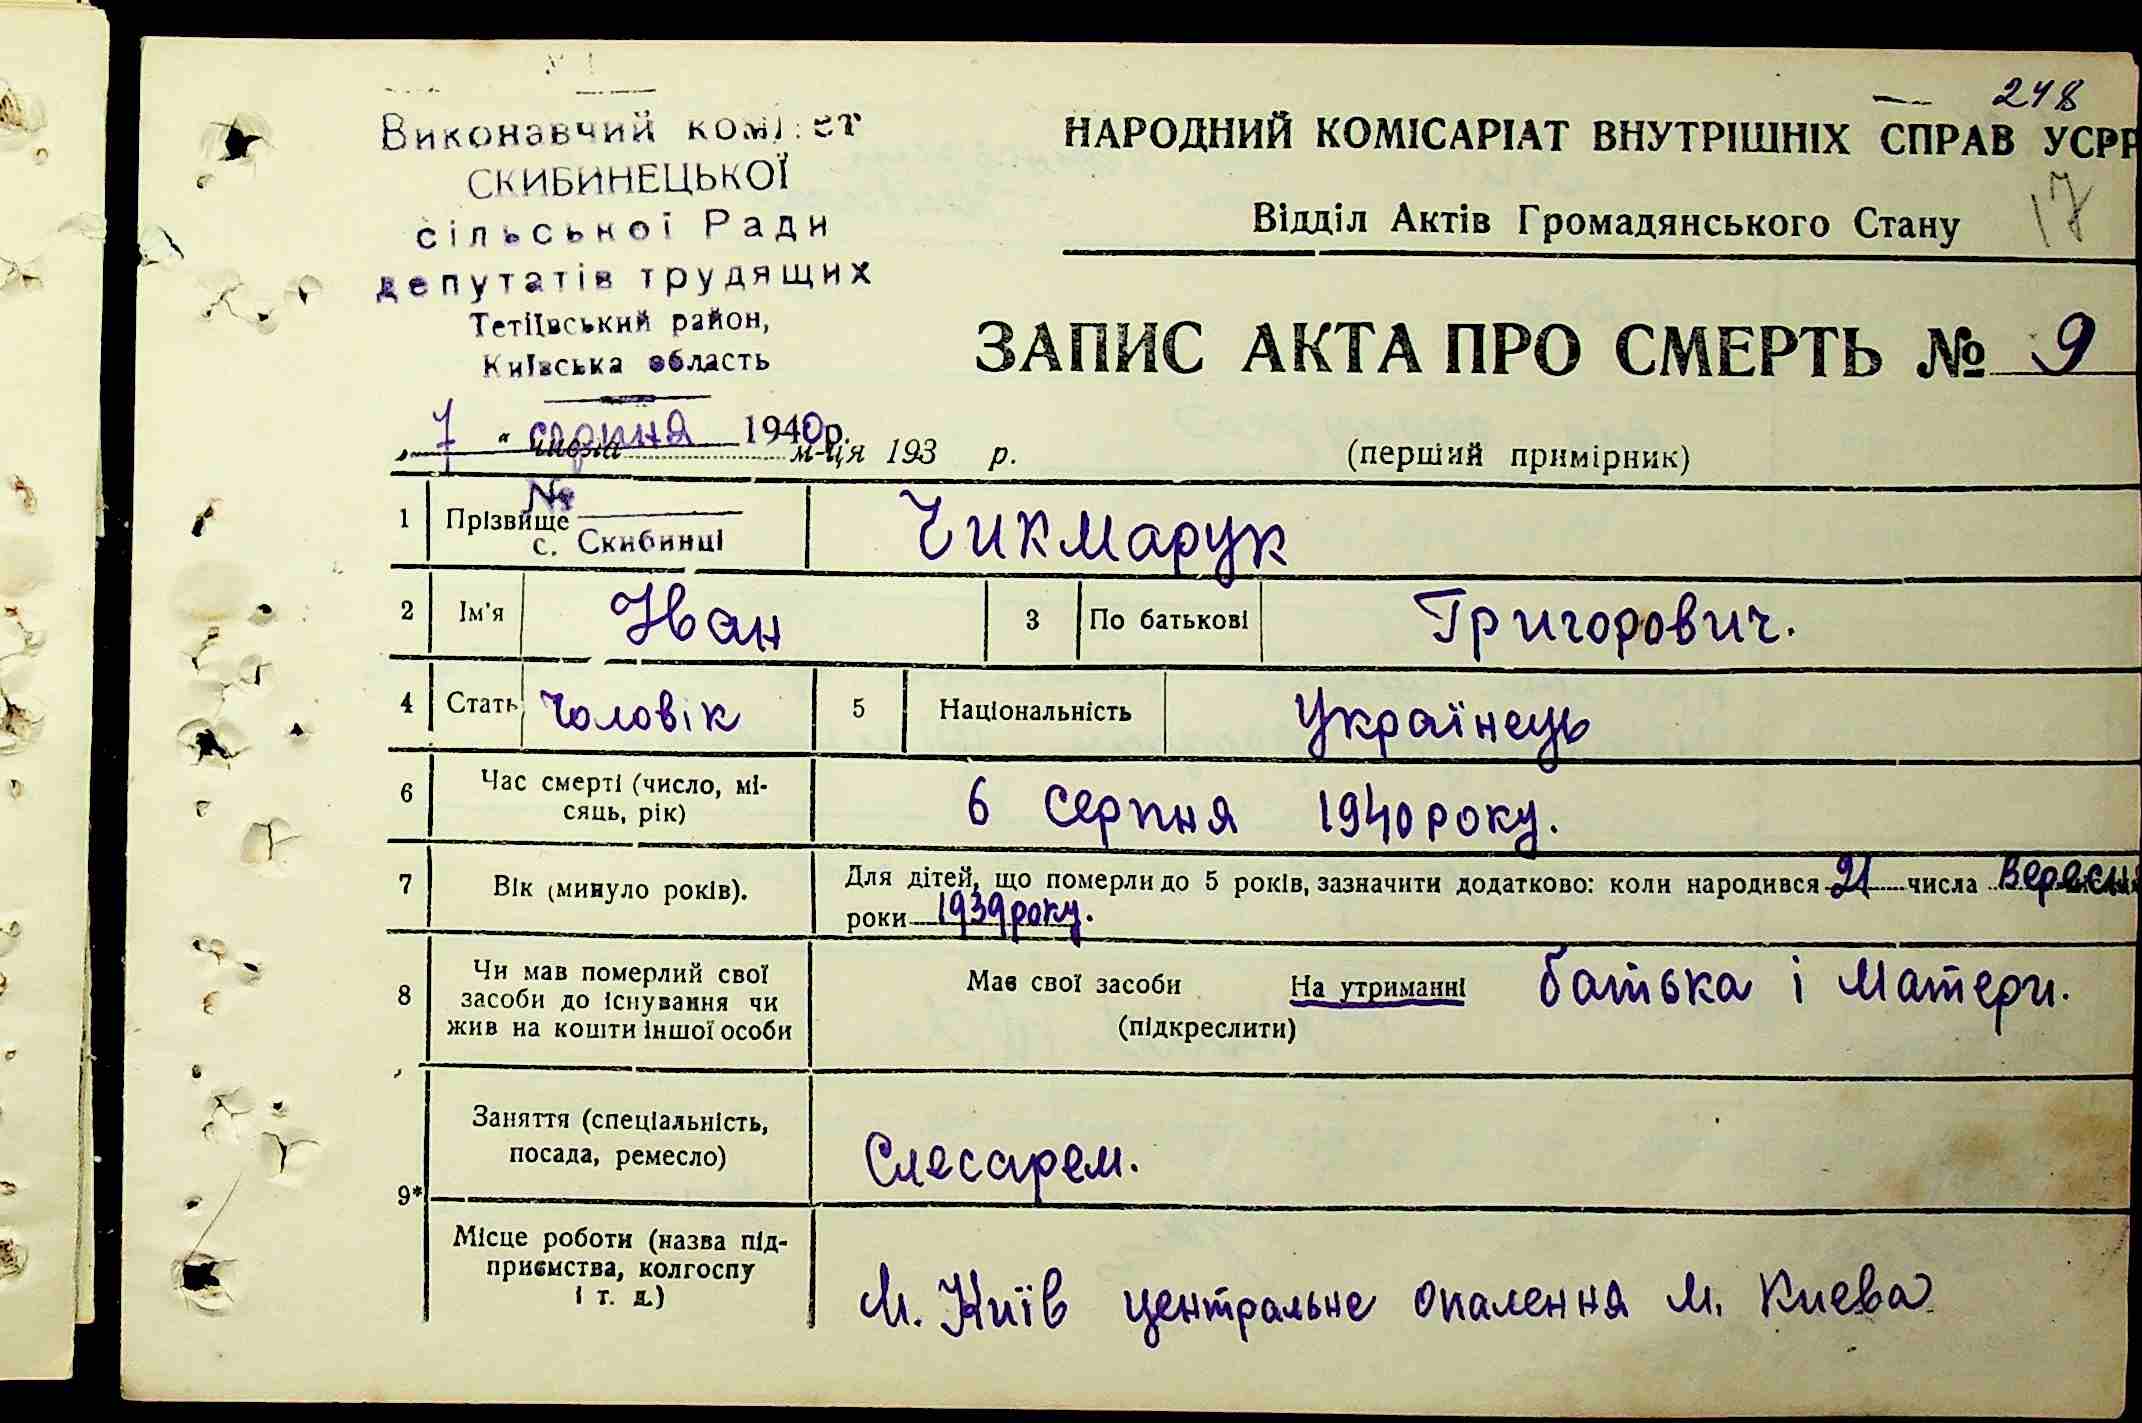 248
Виконавчий комітет
СКИБИНЕЦЬКОЇ
сільської Ради
депутатів трудящих
Тетіївський район,
Київська область
НАРОДНИЙ КОМІСАРІАТ ВНУТРІШНІХ СПРАВ УСРР
17
Відділ Актів Громадянського Стану
ЗАПИС АКТА ПРО СМЕРТЬ № 9
7 " серпня 1940р.
числа м-ця 193 р.
(перший примірник)
№
1 Прізвище Чикмарук
с. Скибинці
2 Ім'я Іван 3 По батькові Григорович.
4 Стать Чоловік 5 Національність Українець
6 Час смерті (число, мі-
сяць, рік) 6 серпня 1940 року.
7 Вік (минуло років). Для дітей, що померли до 5 років, зазначити додатково: коли народився 21 числа Вересня
роки 1939 року.
8 Чи мав померлий свої
засоби до існування чи
жив на кошти іншої особи
Має свої засоби На утриманні батька і Матери.
(підкреслити)
9* Заняття (спеціальність,
посада, ремесло) Слесарем.
Місце роботи (назва під-
приємства, колгоспу
і т. д.) М. Київ центральне опалення м. Києва